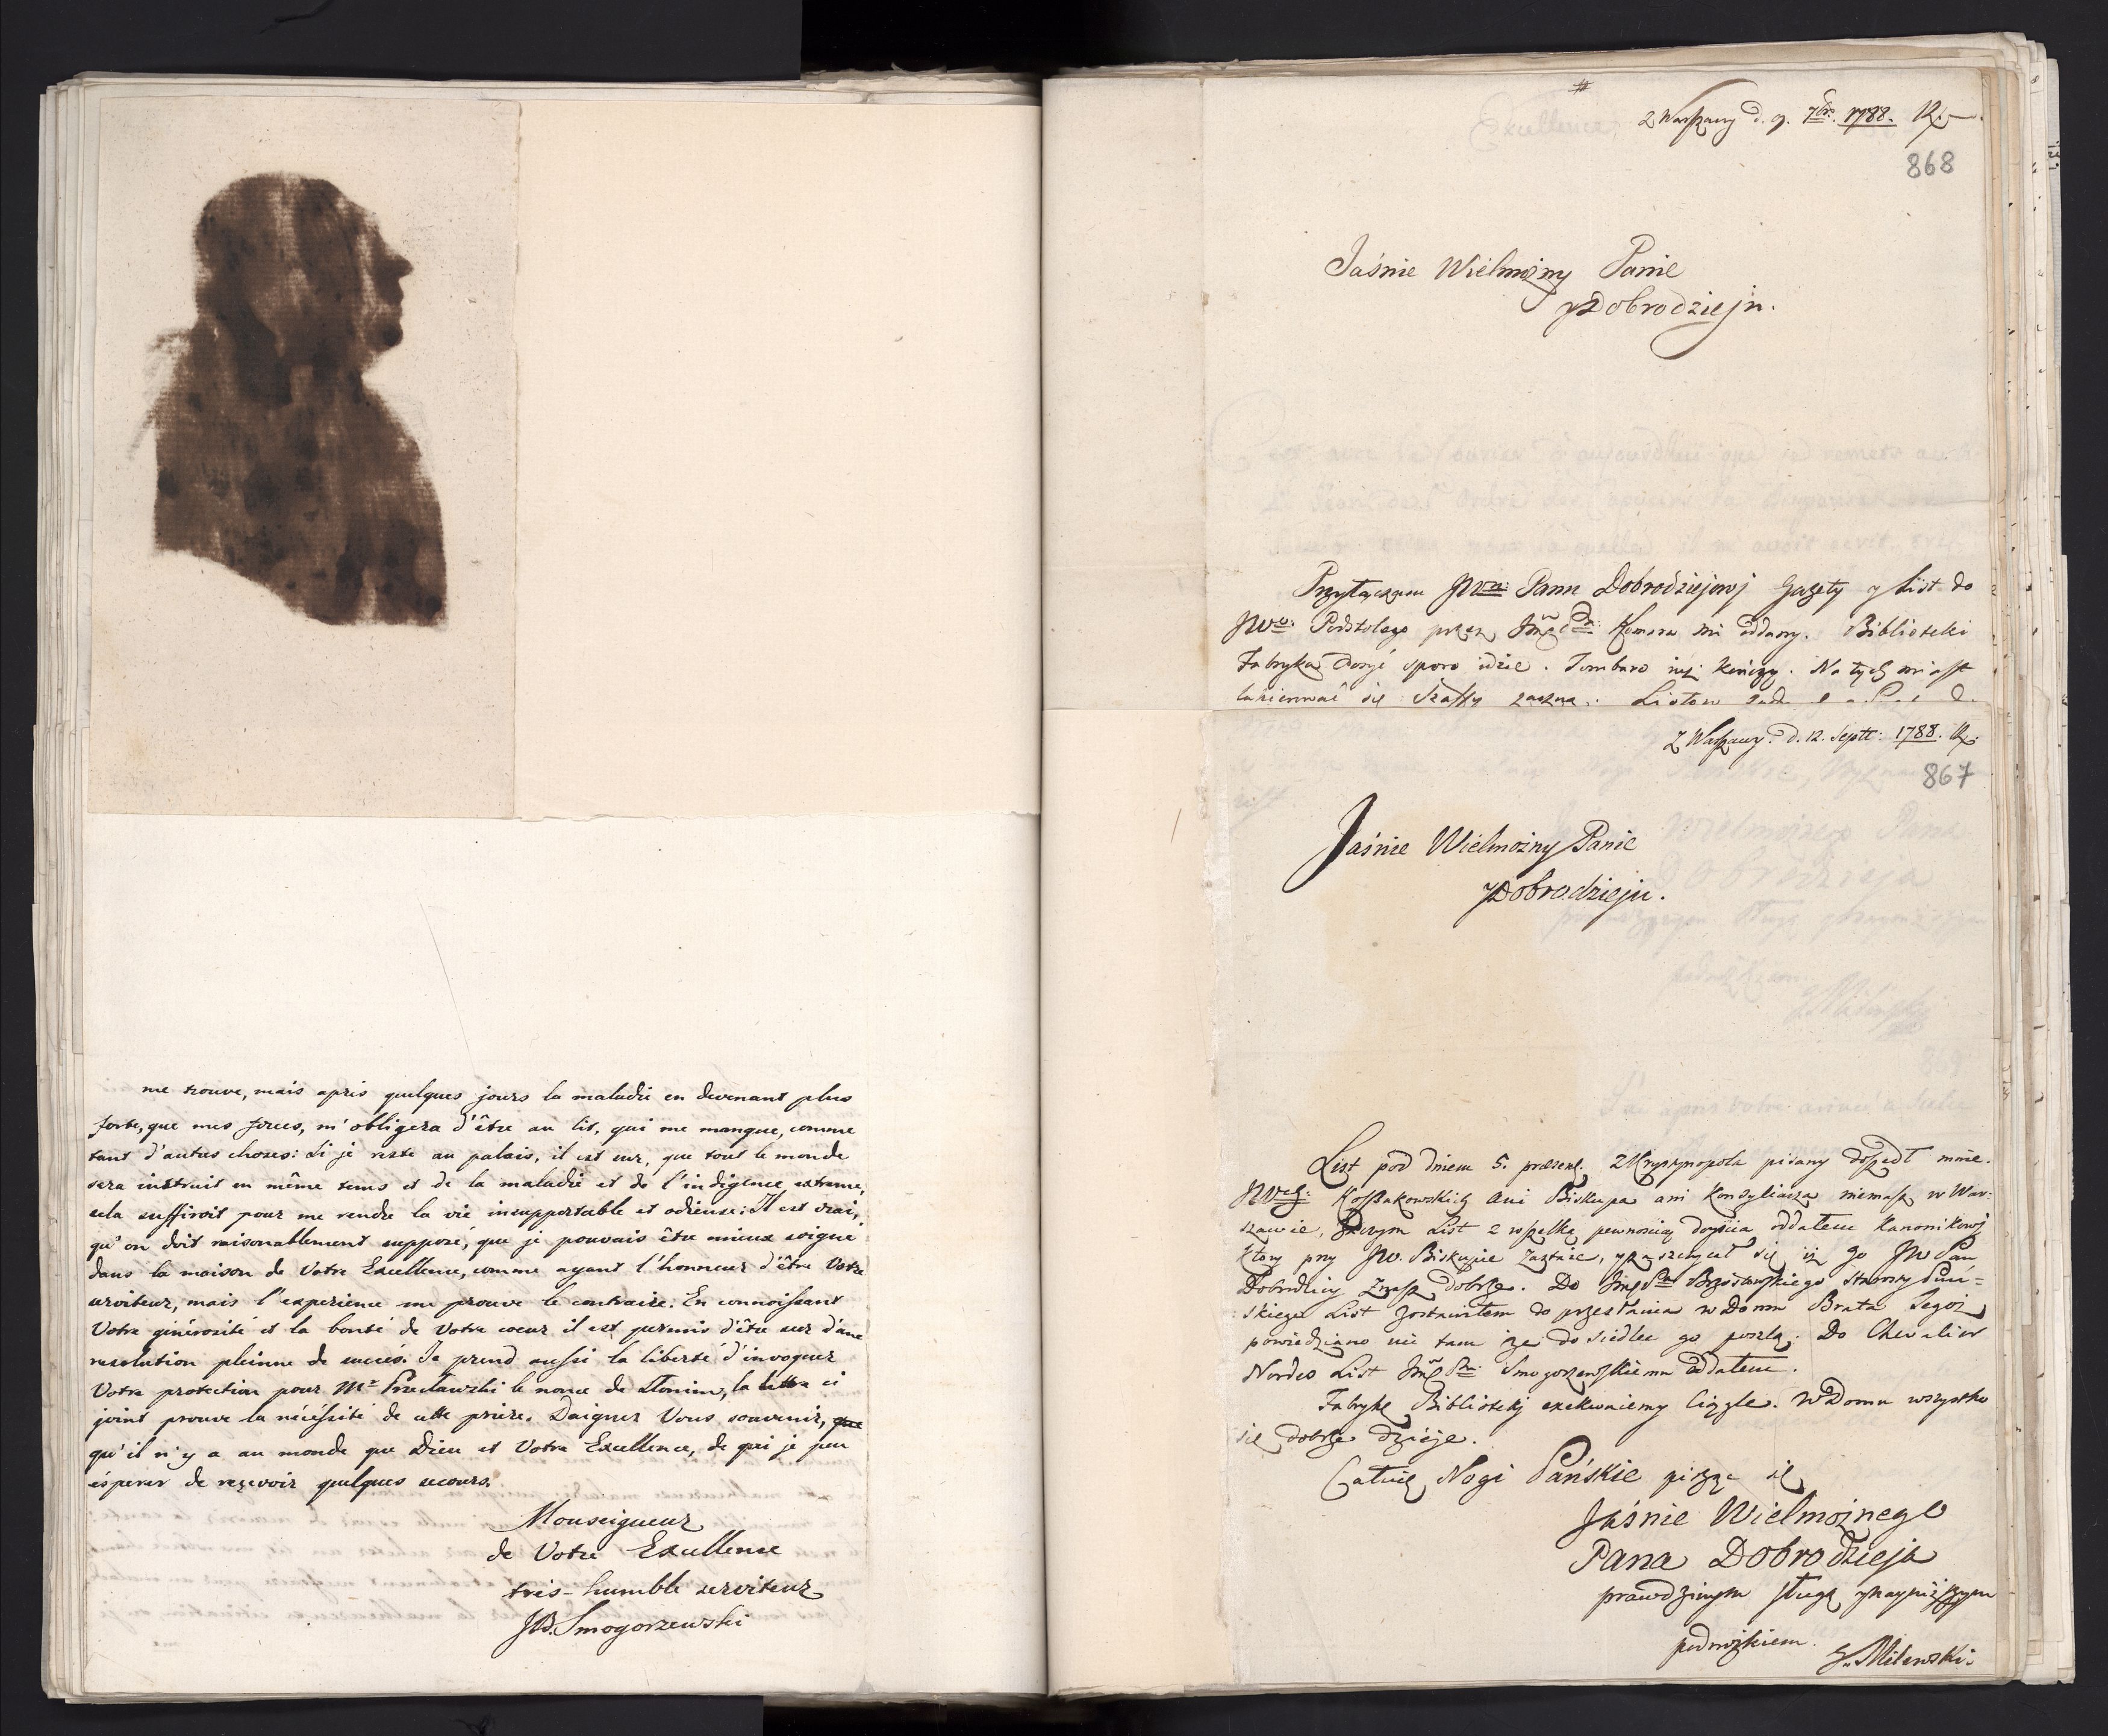 me trouve, mais après quelques jours la maladie en devenant plus
forte, que mes forces, m'obligera d'être au lit, qui me manque, comme
tant d'autres choses: Si je reste au palais, il est sur, que tout le monde
sera instruit en même tems et de la maladie et de l'indigence extreme,
cela suffiroit pour me rendre la vie insupportable et odieuse: Il est vrai,
qu'on doit raisonablement supposé, que je pouvais être mieux soigné
dans la maison de Votre Excellence, comme ayant l'honneur d'être Votre
serviteur, mais l'experience me prouve le contraire. En connoissant
Votre générosité et la bonté de Votre coeur il est permis d'être sur d'une
resolution pleinne de succés. Je prend aussi la liberté d'invoquer
Votre protection pour Mr Przecławski le nonce de Słonim, la lettre ci
joint prouve la nécéssité de cette prière. Daignez Vous souvenir, que
qu'il n'y a au monde que Dieu et Votre Excellence, de qui je peu
ésperer de reçevoir quelques secours.
Monseigneur
de Votre Excellence
très-humble serviteur
JB. Smogorzewski
Z Warszawy d. 9. 7br. 1788. R.
868
Jaśnie Wielmożny Panie
y Dobrodzieju.
Przyłączam JWu: Panu Dobrodziejowi Gazety y List do
JWo: Podstolego przez Komara mi oddany. Biblioteki
Fabryka dosyć sporo idzie. Tambaro iuż kończy. Natychmiast
lakierować się Szaffy zaczną. Listow
Z Warszawy d. 12. Septe: 1788. R.
867
Jaśnie Wielmożny Panie
y Dobrodzieju.
List pod dniem 5. praesent. z Krystynopola pisany doszedł mnie.
JWch: Kossakowskich ani Biskupa ani Konsyliarza niemasz w War:
szawie, zaczym List z wszelką pewnością doyścia oddałem Kanonikowi
ktory przy JW. Biskupie zastaie, y szczycił się iż go JW Pan
Dobrodziey znasz dobrze. Do Brzostowskiego Starosty Puń=
skiego List zostawiłem do przesłania w Domu Brata Jego,
powiedziano mi tam ize do Siedlec go poszlą. Do Chevalier
Nordes List Smogorzewskiemu oddałem.
Fabrykę Biblioteki exekwuiemy ciągle. W Domu wszystko
się dobrze dzieje.
Całuię Nogi Pańskie pisząc się
Jaśnie Wielmożnego
Pana Dobrodzieja
prawdziwym sługą y nayniższym
podnożkiem.
Milewski.